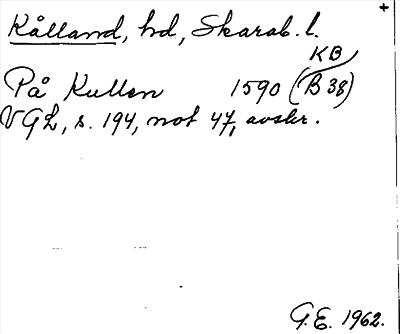 +
Kålland, hd, Skarab. l.
KB
På Kullen 1590 (B 38)
VGL, s. 194, not 47, avskr.
G.E. 1962.